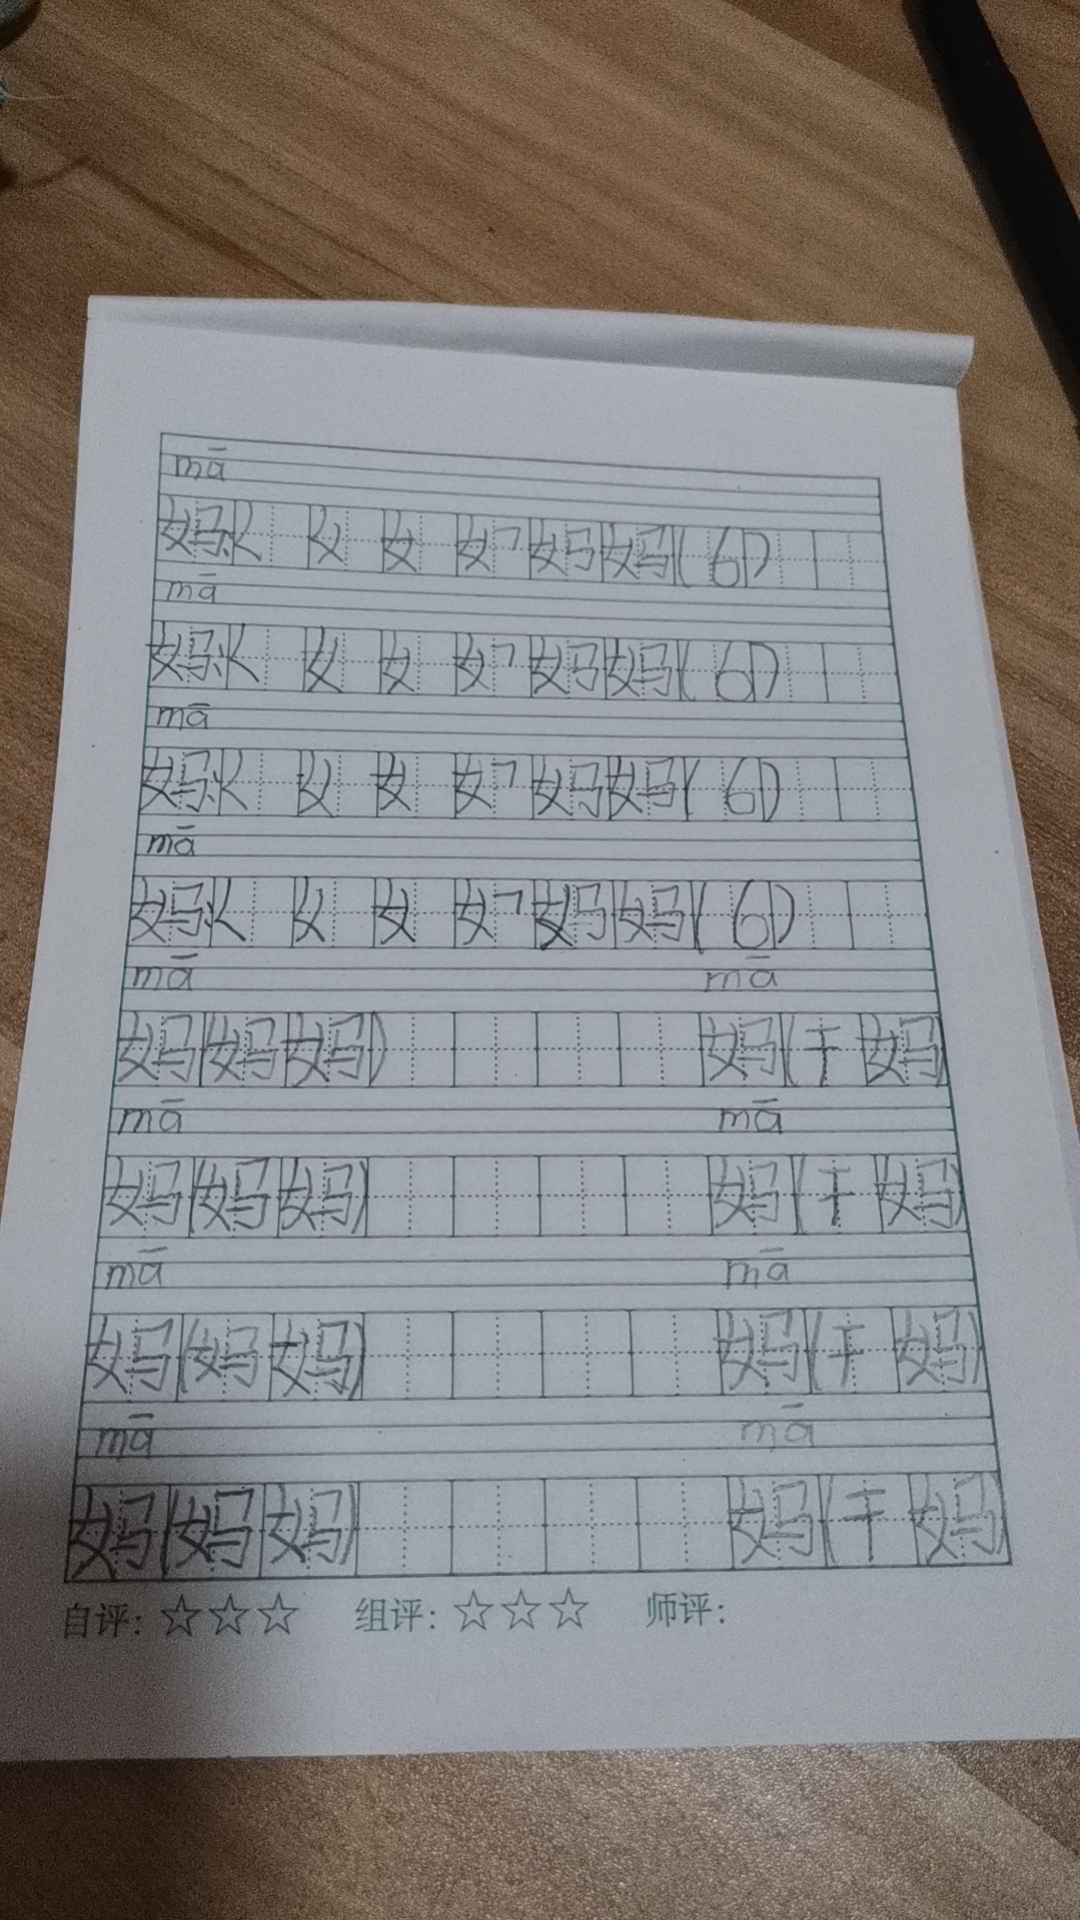 mā
妈:𡿨 乂 女 女㇆ 妈 妈(6)
mā
妈:𡿨 乂 女 女㇆ 妈 妈(6)
mā
妈:𡿨 乂 女 女㇆ 妈 妈(6)
mā
妈:𡿨 乂 女 女㇆ 妈 妈(6)
mā mā
妈(妈妈) 妈(干妈)
mā mā
妈(妈妈) 妈(干妈)
mā mā
妈(妈妈) 妈(干妈)
mā mā
妈(妈妈) 妈(干妈)
自评:☆☆☆ 组评:☆☆☆ 师评: